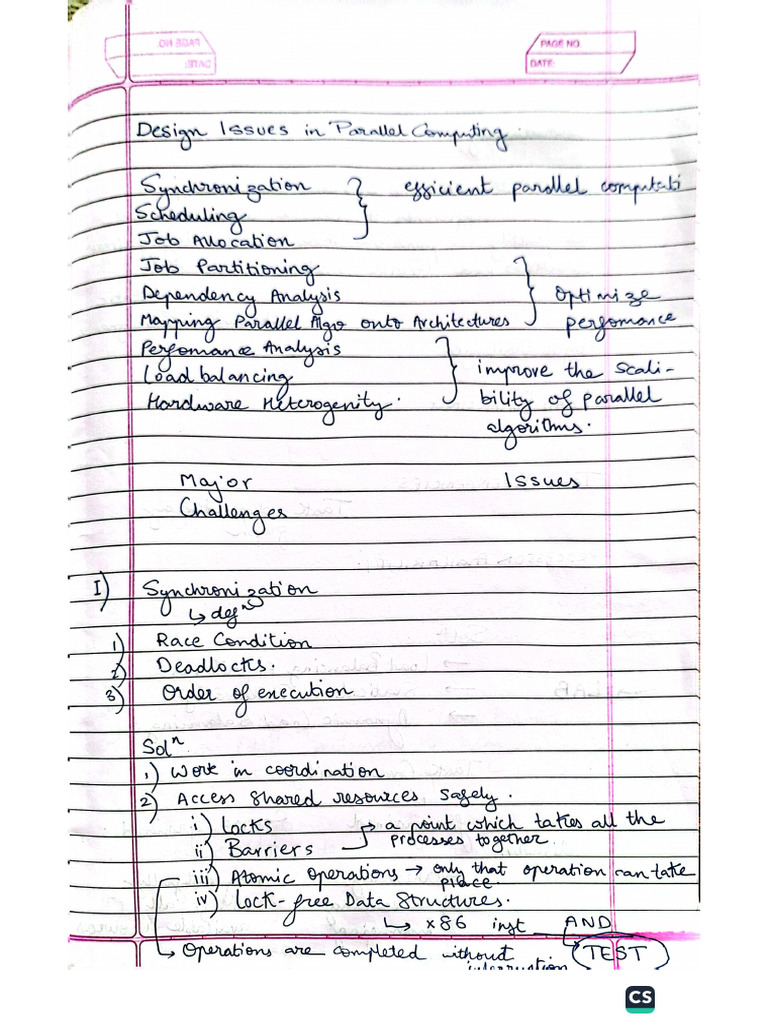 PAGE NO.
DATE:
PAGE NO.
DATE:
Design Issues in Parallel Computing.
Synchronization } efficient parallel computati
Scheduling
Job Allocation
Job Partitioning
Dependency Analysis } Optimize
Mapping Parallel Algo onto Architectures perfomance
Perfomance Analysis
Load balancing } improve the scali-
Hardware Heterogenity. bility of parallel
algorithms.
Major Issues
Challenges
I) Synchronization
↳ defⁿ
1) Race Condition
2) Deadlocks.
3) Order of execution
Solⁿ
1) Work in coordination
2) Access shared resources safely.
i) Locks → a point which takes all the
ii) Barriers processes together.
iii) Atomic Operations → only that operation can take
place.
iv) Lock-free Data Structures.
↳ x86 inst AND
↳ Operations are completed without TEST
interruption
CS